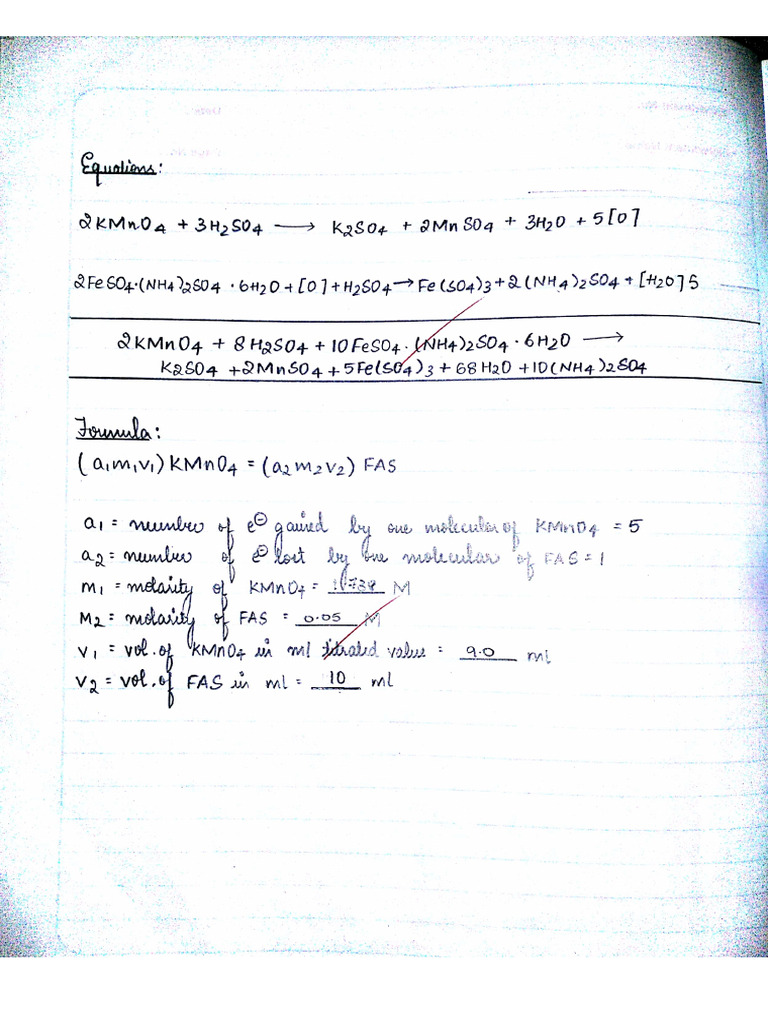 Equations:
2KMnO4 + 3H2SO4 ⟶ K2SO4 + 2MnSO4 + 3H2O + 5[O]
2FeSO4·(NH4)2SO4 ·6H2O + [O] + H2SO4 → Fe(SO4)3 + 2(NH4)2SO4 + [H2O] 5
2KMnO4 + 8H2SO4 + 10FeSO4·(NH4)2SO4·6H2O ⟶
K2SO4 + 2MnSO4 + 5Fe(SO4)3 + 68H2O + 10(NH4)2SO4
Formula:
(a1m1v1) KMnO4 = (a2m2v2) FAS
a1 = number of e⊖ gained by one molecular of KMnO4 = 5
a2 = number of e⊖ lost by one molecular of FAS = 1
m1 = molarity of KMnO4 = M
M2 = molarity of FAS = 0.05 M
V1 = vol. of KMnO4 in ml titrated value = 9.0 ml
V2 = vol. of FAS in ml = 10 ml